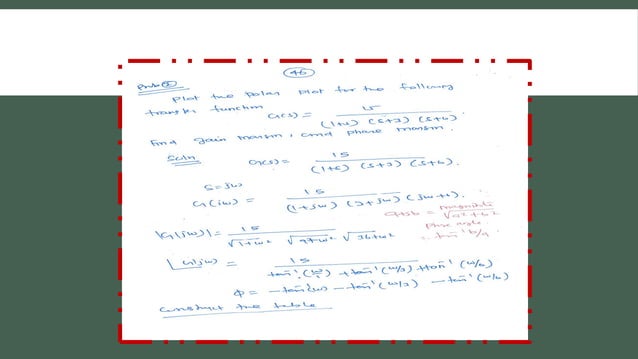 46
Prob ①
Plot the Polar Plot for the following
transfer function
G(s) = 15
(1+s) (s+3) (s+6)
Find gain margin, and phase margin.
Soln
G(s) = 15
(1+s) (s+3) (s+6).
s = jω
G(jω) = 15
(1+jω) (3+jω) (jω+6).
a+jb = magnitude
√a²+b²
phase angle
= tan⁻¹ b/a
|G(jω)| = 15
√1+ω² √9+ω² √36+ω²
∠G(jω) = 15
tan⁻¹(ω/1) + tan⁻¹(ω/3) + tan⁻¹(ω/6)
φ = -tan⁻¹(ω) - tan⁻¹(ω/3) - tan⁻¹(ω/6)
Construct the table